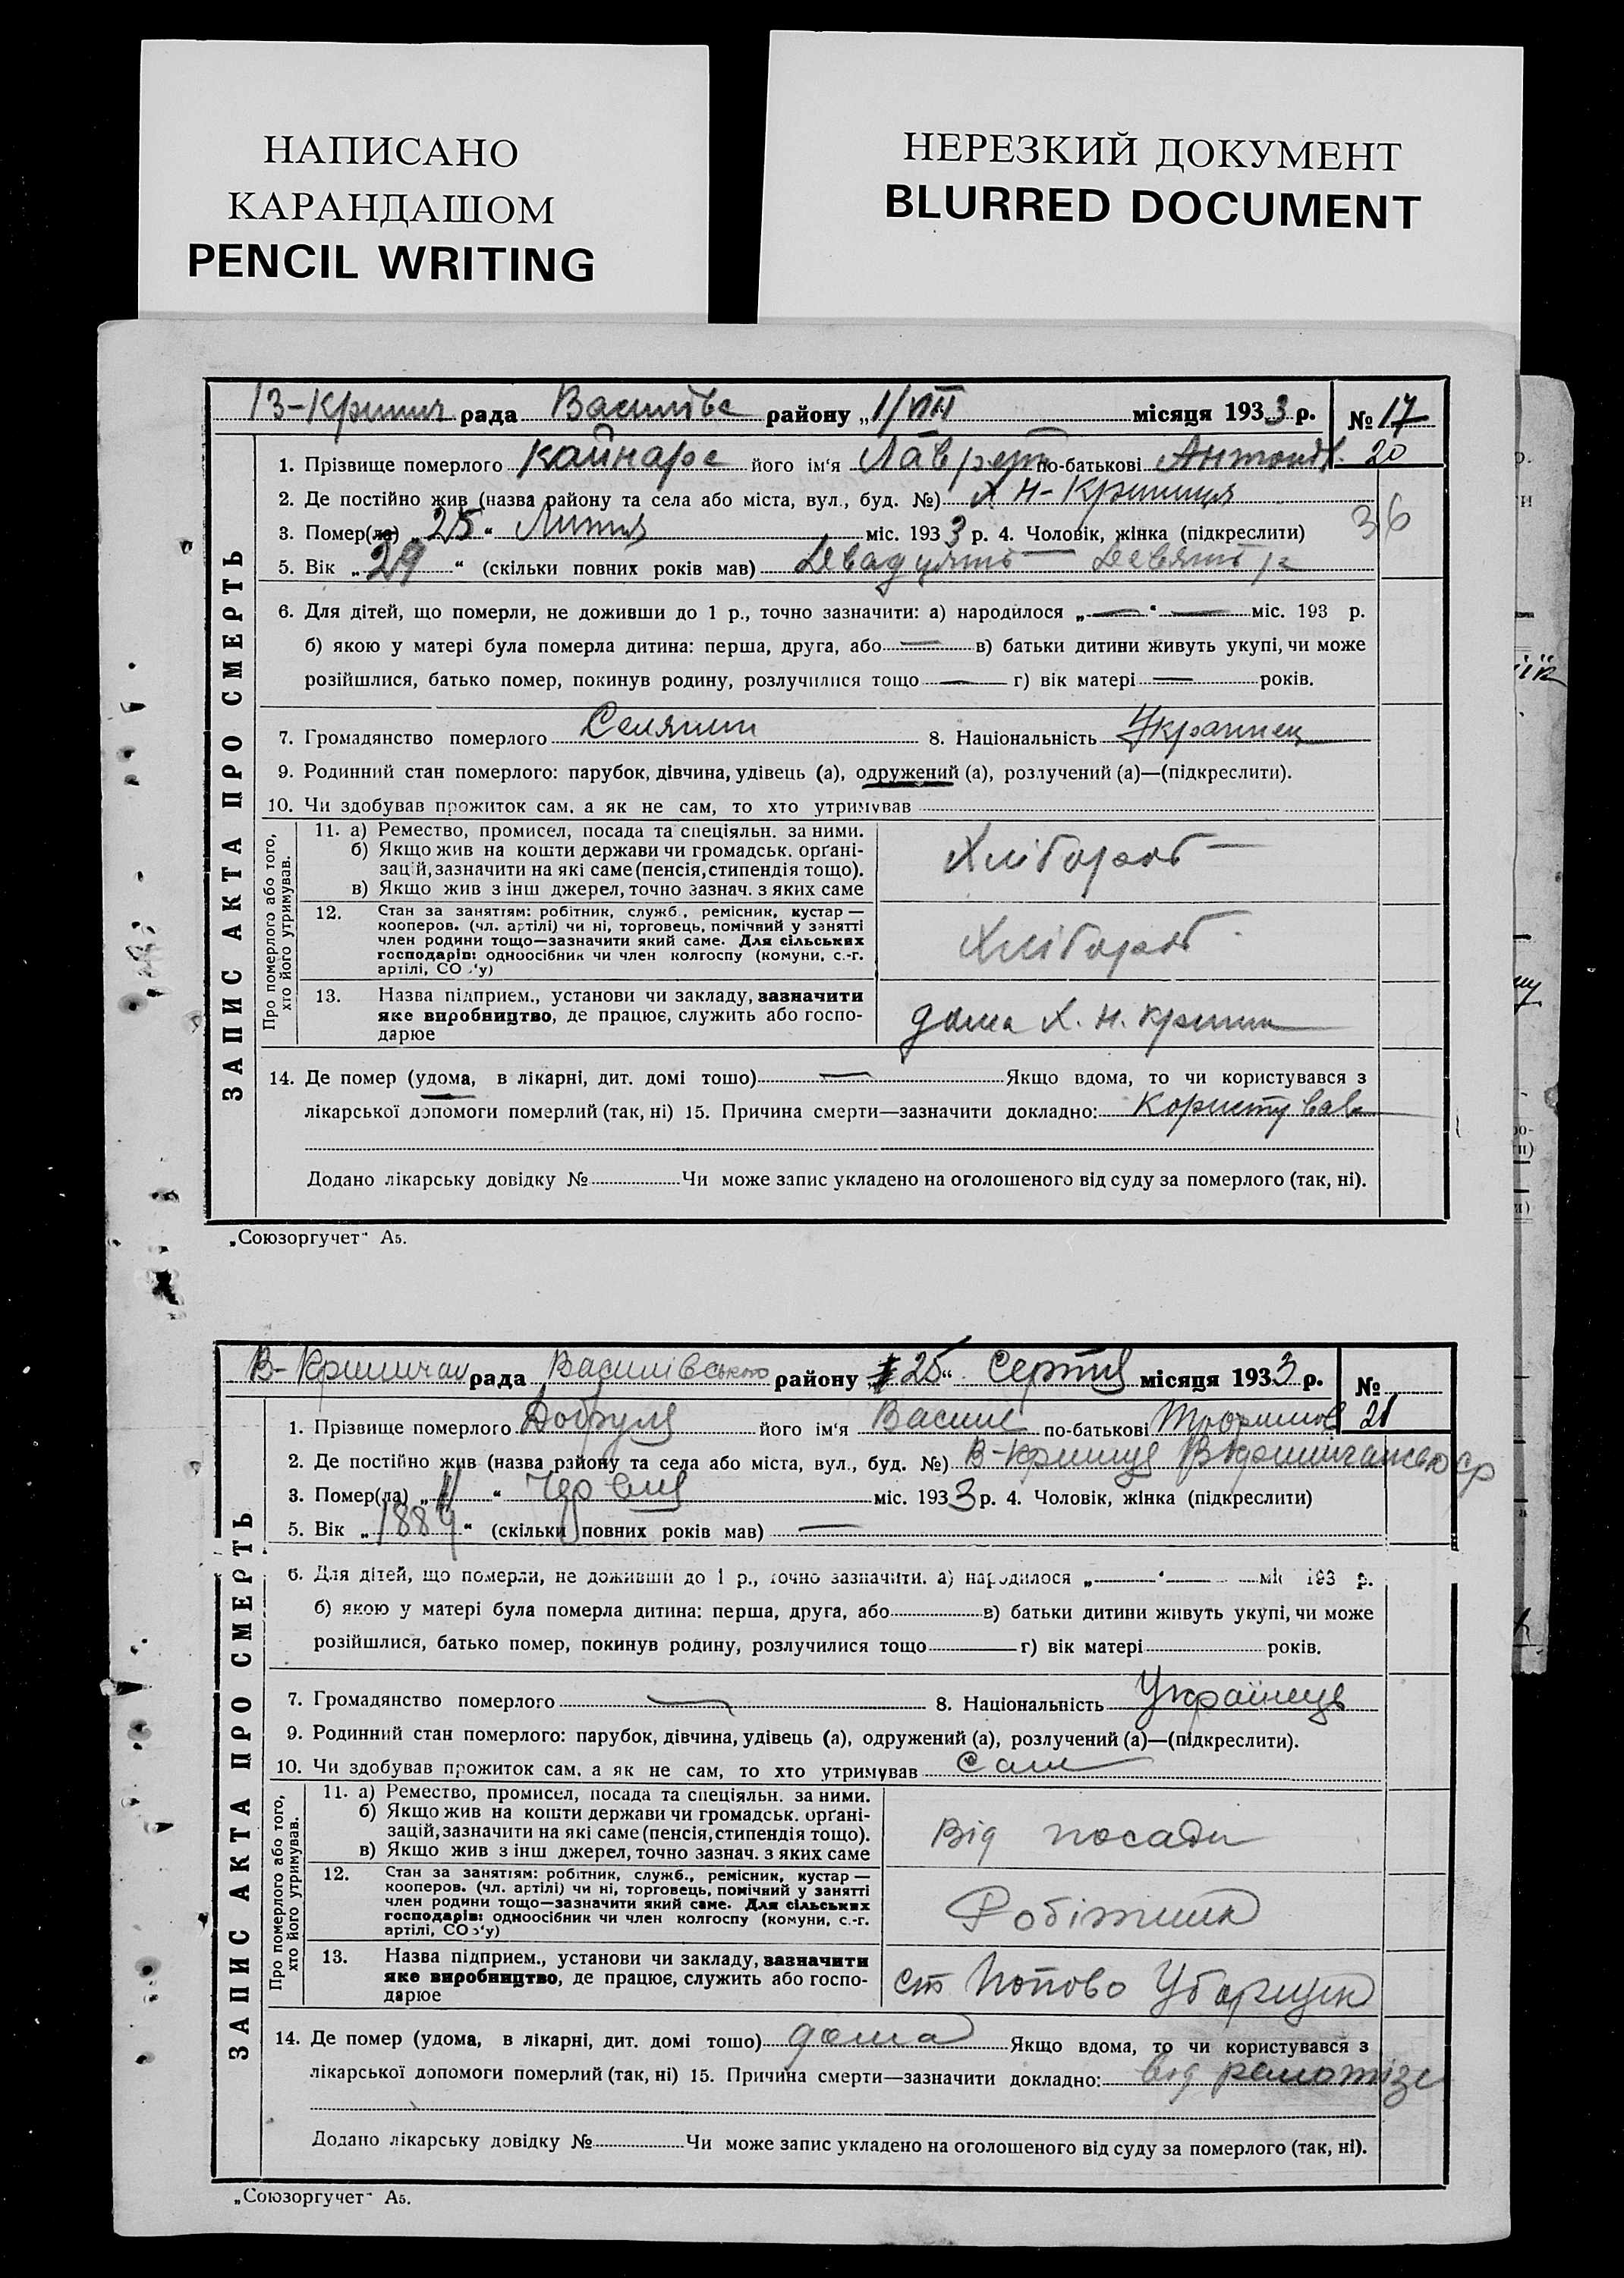 НАПИСАНО
КАРАНДАШОМ
PENCIL WRITING
НЕРЕЗКИЙ ДОКУМЕНТ
BLURRED DOCUMENT
ЗАПИС АКТА ПРО СМЕРТЬ
рада району „1/VIII місяця 1933 р. № 17
1. Прізвище померлого Кайнара його ім'я Лаврент по-батькові Антонов. 20
2. Де постійно жив (назва району та села або міста, вул., буд. №) Х Н-Криниця
3. Помер(ла) „25“ Липня міс. 1933 р. 4. Чоловік, жінка (підкреслити) 36
5. Вік „29“ (скільки повних років мав) Двадцять Девять
6. Для дітей, що померли, не доживши до 1 р., точно зазначити: а) народилося „—“ — міс. 193 р.
б) якою у матері була померла дитина: перша, друга, або — в) батьки дитини живуть укупі, чи може
розійшлися, батько помер, покинув родину, розлучилися тощо — г) вік матері — років.
7. Громадянство померлого Селянин 8. Національність Украинец
9. Родинний стан померлого: парубок, дівчина, удівець (а), одружений (а), розлучений (а)—(підкреслити).
10. Чи здобував прожиток сам, а як не сам, то хто утримував
Про померлого або того, хто його утримував.
11. а) Ремество, промисел, посада та спеціяльн. за ними.
б) Якщо жив на кошти держави чи громадськ. орґані-
зацій, зазначити на які саме (пенсія, стипендія тощо).
в) Якщо жив з інш джерел, точно зазнач. з яких саме
Хлібороб —
12. Стан за заняттям: робітник, служб., ремісник, кустар —
кооперов. (чл. артілі) чи ні, торговець, помічний у занятті
член родини тощо—зазначити який саме. Для сільських
господарів: одноосібник чи член колгоспу (комуни, с.-г.
артілі, СО з'у)
Хлібороб
13. Назва підприєм., установи чи закладу, зазначити
яке виробництво, де працює, служить або госпо-
дарює
дома Х. Н. Крини
14. Де помер (удома, в лікарні, дит. домі тощо) — Якщо вдома, то чи користувався з
лікарської допомоги померлий (так, ні) 15. Причина смерти—зазначити докладно: Користувавс
Додано лікарську довідку № Чи може запис укладено на оголошеного від суду за померлого (так, ні).
„Союзоргучет“ А5.
ЗАПИС АКТА ПРО СМЕРТЬ
рада Василівського району „25“ місяця 1933 р. №
1. Прізвище померлого Добруля його ім'я Васил по-батькові 21
2. Де постійно жив (назва району та села або міста, вул., буд. №) В-Криниця
3. Помер(ла) „11“ міс. 1933 р. 4. Чоловік, жінка (підкреслити)
5. Вік „1884“ (скільки повних років мав) —
6. Для дітей, що померли, не доживши до 1 р., точно зазначити: а) народилося „—“ — міс 193 р.
б) якою у матері була померла дитина: перша, друга, або в) батьки дитини живуть укупі, чи може
розійшлися, батько помер, покинув родину, розлучилися тощо — г) вік матері років.
7. Громадянство померлого — 8. Національність Українець
9. Родинний стан померлого: парубок, дівчина, удівець (а), одружений (а), розлучений (а)—(підкреслити).
10. Чи здобував прожиток сам, а як не сам, то хто утримував Сам
Про померлого або того, хто його утримував.
11. а) Ремество, промисел, посада та спеціяльн. за ними.
б) Якщо жив на кошти держави чи громадськ. орґані-
зацій, зазначити на які саме (пенсія, стипендія тощо).
в) Якщо жив з інш джерел, точно зазнач. з яких саме
Від посади
12. Стан за заняттям: робітник, служб., ремісник, кустар —
кооперов. (чл. артілі) чи ні, торговець, помічний у занятті
член родини тощо—зазначити який саме. Для сільських
господарів: одноосібник чи член колгоспу (комуни, с.-г.
артілі, СО з'у)
Робітник
13. Назва підприєм., установи чи закладу, зазначити
яке виробництво, де працює, служить або госпо-
дарює
ст Попово
14. Де помер (удома, в лікарні, дит. домі тощо) дома Якщо вдома, то чи користувався з
лікарської допомоги померлий (так, ні) 15. Причина смерти—зазначити докладно: від
Додано лікарську довідку № Чи може запис укладено на оголошеного від суду за померлого (так, ні).
„Союзоргучет“ А5.